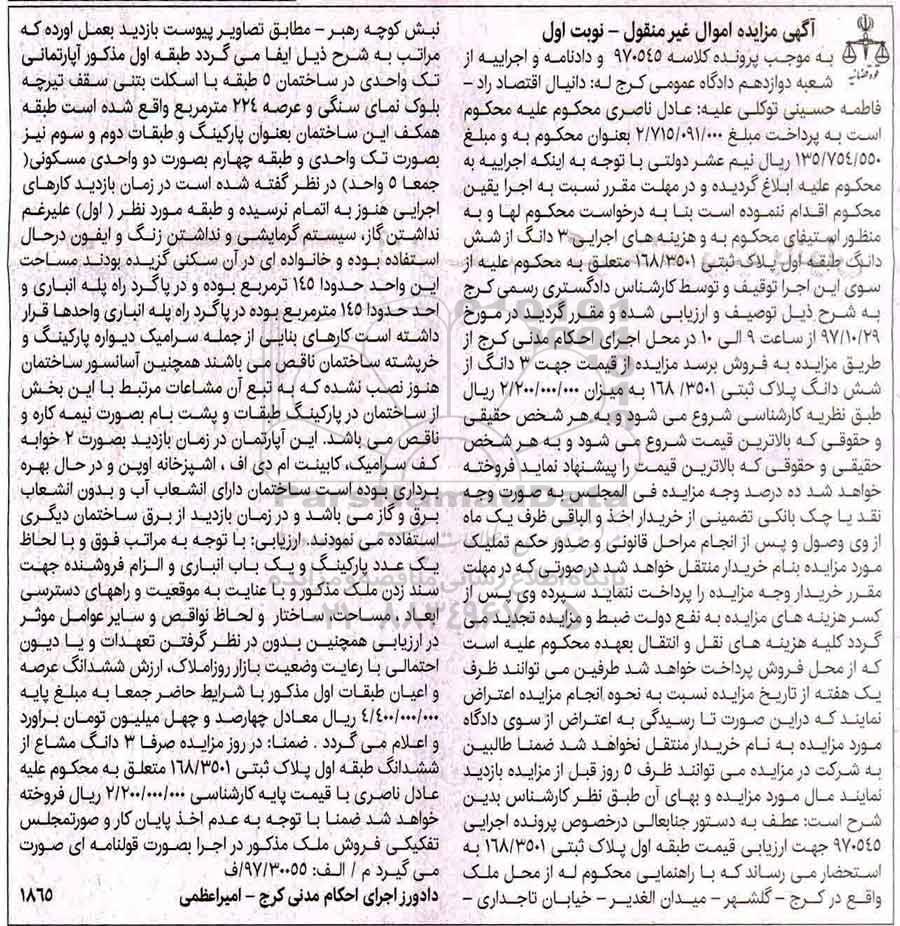 آگهی مزایده اموال غیر منقول – نوبت اول
به موجب پرونده کلاسه ۹۷۰۵۴۵ و دادنامه و اجراییه از
شعبه دوازدهم دادگاه عمومی کرج له: دانیال اقتصاد راد –
فاطمه حسینی توکلی علیه: عادل ناصری محکوم علیه محکوم
است به پرداخت مبلغ ۲/۷۱۵/۰۹۱/۰۰۰ بعنوان محکوم به و مبلغ
۱۳۵/۷۵۴/۵۵۰ ریال نیم عشر دولتی با توجه به اینکه اجراییه به
محکوم علیه ابلاغ گردیده و در مهلت مقرر نسبت به اجرا یقین
محکوم اقدام ننموده است بنا به درخواست محکوم لها و به
منظور استیفای محکوم به و هزینه های اجرایی ۳ دانگ از شش
دانگ طبقه اول پلاک ثبتی ۱۶۸/۳۵۰۱ متعلق به محکوم علیه از
سوی این اجرا توقیف و توسط کارشناس دادگستری رسمی کرج
به شرح ذیل توصیف و ارزیابی شده و مقرر گردید در مورخ
۹۷/۱۰/۲۹ از ساعت ۹ الی ۱۰ در محل اجرای احکام مدنی کرج از
طریق مزایده به فروش برسد مزایده از قیمت جهت ۳ دانگ از
شش دانگ پلاک ثبتی ۳۵۰۱/ ۱۶۸ به میزان ۲/۲۰۰/۰۰۰/۰۰۰ ریال
طبق نظریه کارشناسی شروع می شود و به هر شخص حقیقی
و حقوقی که بالاترین قیمت شروع می شود و به هر شخص
حقیقی و حقوقی که بالاترین قیمت را پیشنهاد نماید فروخته
خواهد شد ده درصد وجه مزایده فی المجلس به صورت وجه
نقد یا چک بانکی تضمینی از خریدار اخذ و الباقی ظرف یک ماه
از وی وصول و پس از انجام مراحل قانونی و صدور حکم تملیک
مورد مزایده بنام خریدار منتقل خواهد شد در صورتی که در مهلت
مقرر خریدار وجه مزایده را پرداخت ننماید سپرده وی پس از
کسر هزینه های مزایده به نفع دولت ضبط و مزایده تجدید می
گردد کلیه هزینه های نقل و انتقال بعهده محکوم علیه است
که از محل فروش پرداخت خواهد شد طرفین می توانند ظرف
یک هفته از تاریخ مزایده نسبت به نحوه انجام مزایده اعتراض
نمایند که دراین صورت تا رسیدگی به اعتراض از سوی دادگاه
مورد مزایده به نام خریدار منتقل نخواهد شد ضمنا طالبین
به شرکت در مزایده می توانند ظرف ۵ روز قبل از مزایده بازدید
نمایند مال مورد مزایده و بهای آن طبق نظر کارشناس بدین
شرح است: عطف به دستور جنابعالی درخصوص پرونده اجرایی
۹۷۰۵۴۵ جهت ارزیابی قیمت طبقه اول پلاک ثبتی ۱۶۸/۳۵۰۱ به
استحضار می رساند که با راهنمایی محکوم له از محل ملک
واقع در کرج – گلشهر – میدان الغدیر – خیابان تاجداری –
نبش کوچه رهبر – مطابق تصاویر پیوست بازدید بعمل اورده که
مراتب به شرح ذیل ایفا می گردد طبقه اول مذکور آپارتمانی
تک واحدی در ساختمان ۵ طبقه با اسکلت بتنی سقف تیرچه
بلوک نمای سنگی و عرصه ۲۲۴ مترمربع واقع شده است طبقه
همکف این ساختمان بعنوان پارکینگ و طبقات دوم و سوم نیز
بصورت تک واحدی و طبقه چهارم بصورت دو واحدی مسکونی(
جمعا ۵ واحد) در نظر گفته شده است در زمان بازدید کارهای
اجرایی هنوز به اتمام نرسیده و طبقه مورد نظر ( اول) علیرغم
نداشتن گاز، سیستم گرمایشی و نداشتن زنگ و ایفون درحال
استفاده بوده و خانواده ای در آن سکنی گزیده بودند مساحت
این واحد حدودا ۱۴۵ ترمربع بوده و در پاگرد راه پله انباری و
احد حدودا ۱۴۵ مترمربع بوده در پاگرد راه پله انباری واحدها قرار
داشته است کارهای بنایی از جمله سرامیک دیواره پارکینگ و
خرپشته ساختمان ناقص می باشند همچنین آسانسور ساختمان
هنوز نصب نشده که به تبع آن مشاعات مرتبط با این بخش
از ساختمان در پارکینگ طبقات و پشت بام بصورت نیمه کاره و
ناقص می باشد. این آپارتمان در زمان بازدید بصورت ۲ خوابه
کف سرامیک، کابینت ام دی اف ، اشپزخانه اوپن و در حال بهره
برداری بوده است ساختمان دارای انشعاب آب و بدون انشعاب
برق و گاز می باشد و در زمان بازدید از برق ساختمان دیگری
استفاده می نمودند. ارزیابی: با توجه به مراتب فوق و با لحاظ
یک عدد پارکینگ و یک باب انباری و الزام فروشنده جهت
سند زدن ملک مذکور و با عنایت به موقعیت و راههای دسترسی
ابعاد, مساحت, ساختار و لحاظ نواقص و سایر عوامل موثر
در ارزیابی همچنین بدون در نظر گرفتن تعهدات و یا دیون
احتمالی با رعایت وضعیت بازار روزاملاک، ارزش ششدانگ عرصه
و اعیان طبقات اول مذکور با شرایط حاضر جمعا به مبلغ پایه
۴/۴۰۰/۰۰۰/۰۰۰ ریال معادل چهارصد و چهل میلیون تومان براورد
و اعلام می گردد . ضمنا: در روز مزایده صرفا ۳ دانگ مشاع از
ششدانگ طبقه اول پلاک ثبتی ۱۶۸/۳۵۰۱ متعلق به محکوم علیه
عادل ناصری با قیمت پایه کارشناسی ۲/۲۰۰/۰۰۰/۰۰۰ ریال فروخته
خواهد شد ضمنا با توجه به عدم اخذ پایان کار و صورتمجلس
تفکیکی فروش ملک مذکور در اجرا بصورت قولنامه ای صورت
می گیرد م / الف: ۹۷/۳۰۰۵۵/ف
دادورز اجرای احکام مدنی کرج – امیراعظمی
۱۸۶۵
ParsNamadData
پایگاه اطلاع رسانی مناقصه و مزایده
۰۲۱-۸۸۳۴۹۶۷۰